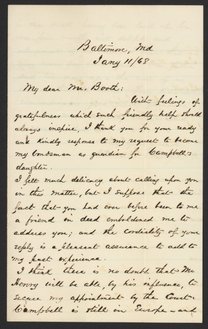 Baltimore, Md
Jany 11/68
My dear Mr. Booth:
With feelings of
gratefulness which such friendly help should
always inspire, I thank you for your ready
and kindly response to my request to become
my bondsman as guardian for Campbell's
daughter.
I felt much delicacy about calling upon you
in this matter, but I suppose that the
fact that you had ever before been to me
a friend in deed emboldened me to
address you; and the cordiality of your
reply is a pleasant assurance to add to
my past experience.
I think there is no doubt that Mr
will be able, by his influence, to
secure my appointment by the Court.
Campbell is still in Europe and